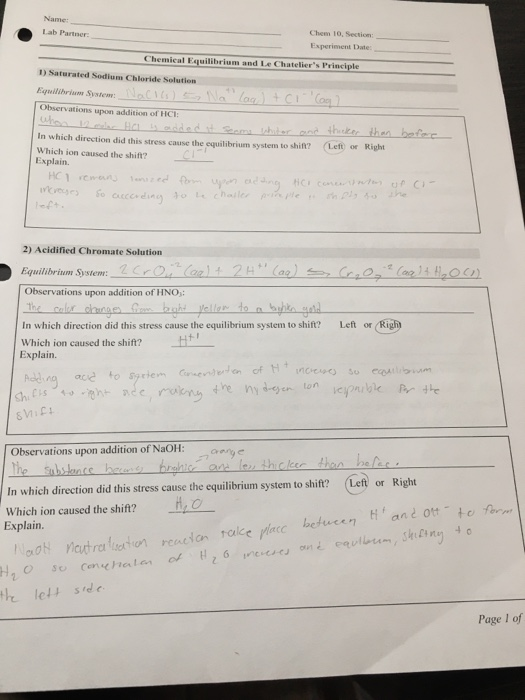 Name:
Lab Partner:
Chem 10, Section:
Experiment Date:
Chemical Equilibrium and Le Chatelier's Principle
1) Saturated Sodium Chloride Solution
Equilibrium System: NaCl(l) ⇌ Na⁺¹(aq) + Cl⁻¹(aq)
Observations upon addition of HCl:
when HCl is added it seems whiter and thicker than before
In which direction did this stress cause the equilibrium system to shift? Left or Right
Which ion caused the shift? Cl⁻¹
Explain.
HCl remains ionized form upon adding HCl of Cl⁻
increases so according to le the
left.
2) Acidified Chromate Solution
Equilibrium System: 2CrO₄⁻²(aq) + 2H⁺¹(aq) ⇌ Cr₂O₇⁻²(aq) + H₂O(l)
Observations upon addition of HNO₃:
The color changes from bright yellow to a gold
In which direction did this stress cause the equilibrium system to shift? Left or Right
Which ion caused the shift? H⁺¹
Explain.
Adding acid to system of H⁺ increases so equilibrium
shifts to right side, making the hydrogen ion for the
shift
Observations upon addition of NaOH:
orange
The substance becomes and less thicker than before.
In which direction did this stress cause the equilibrium system to shift? Left or Right
Which ion caused the shift? H₂O
Explain.
NaOH reaction take place between H⁺ and OH⁻ to form
H₂O so of H₂O and , shifting to
the left side
Page 1 of